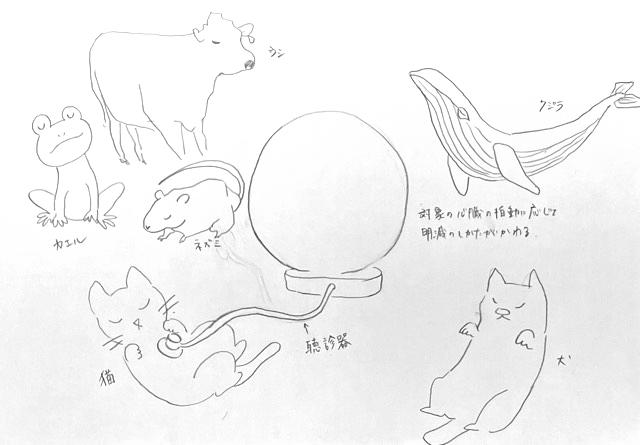 ウシ
クジラ
カエル
ネズミ
対象の心臓の拍動に応じて
明滅のしかたがかわる.
聴診器
猫
犬